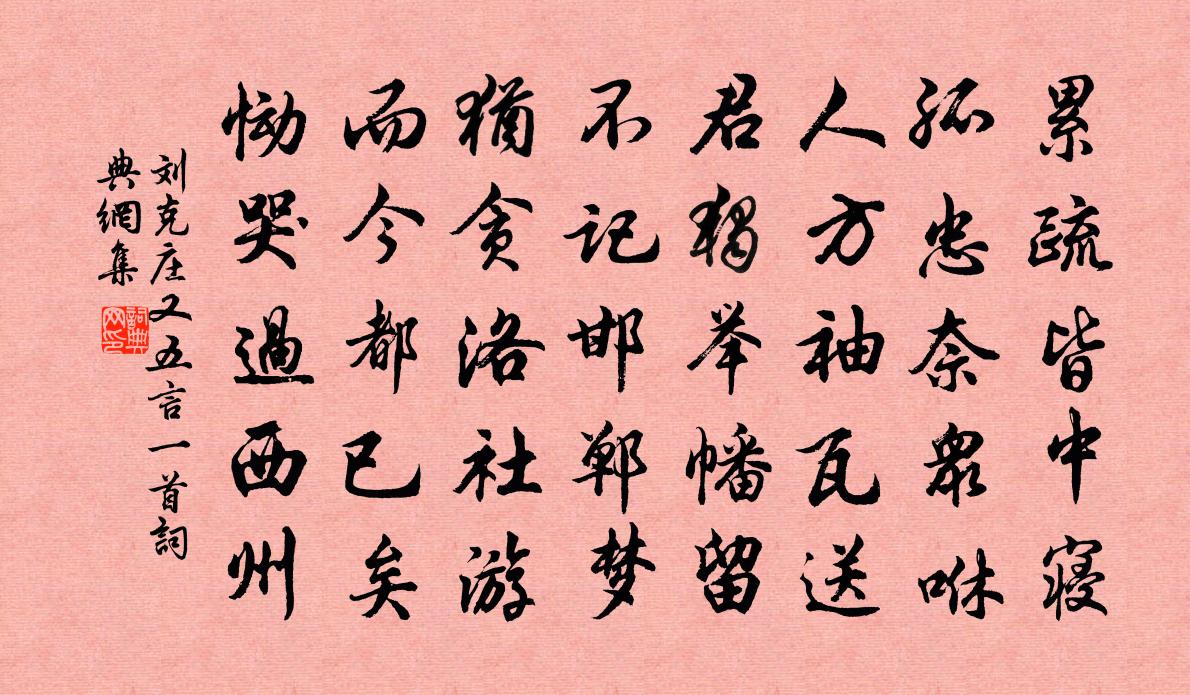 累疏皆中寝
孤忠奈众咻
人方袖瓦送
君独举幡留
不记邯郸梦
犹贪洛社游
而今都已矣
恸哭过西州
刘克庄又五言一首词
典網集
詞典网印